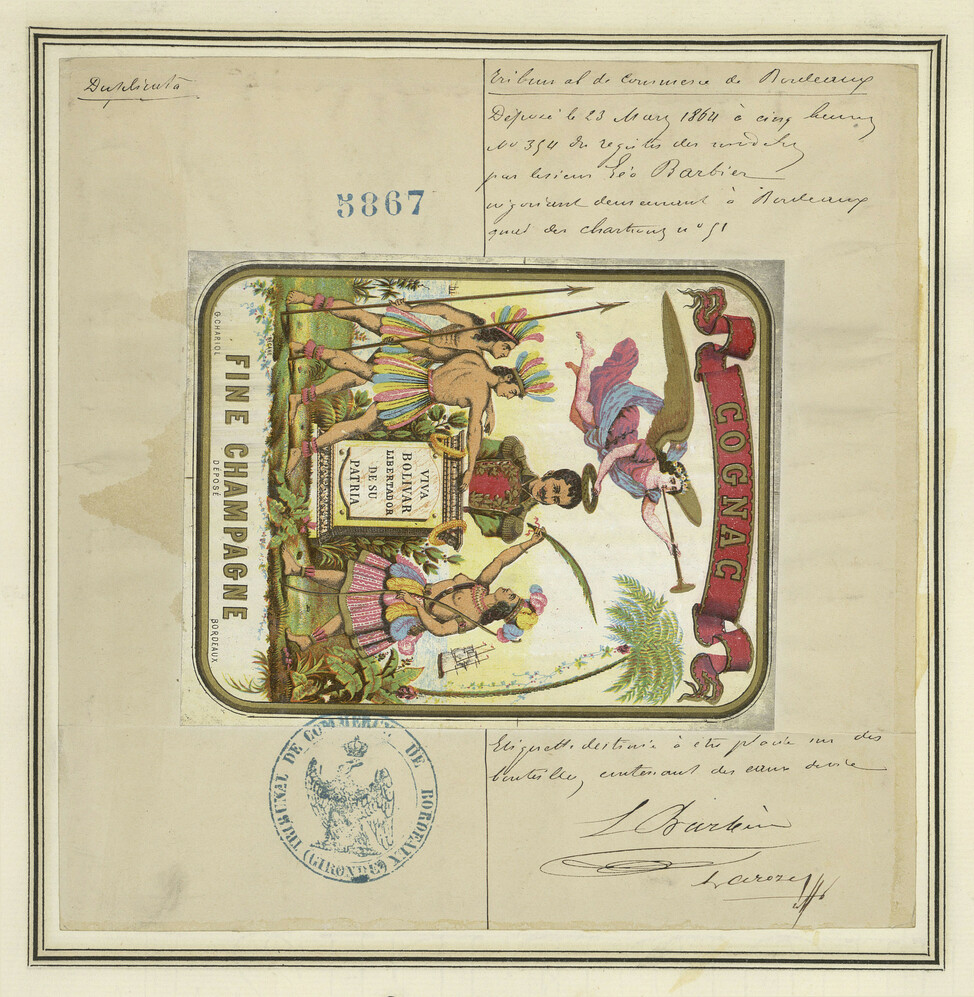 Duplicata
Tribunal de Commerce de Bordeaux
Déposé le 23 Mars 1864 à cinq heures
No 354 du registre des modèles
par le sieur Léo Barbier
négociant demeurant à Bordeaux
quai des Chartrons nº 91
5867
COGNAC
VIVA
BOLIVAR
LIBERTADOR
DE SU
PATRIA
FINE CHAMPAGNE
G. CHARIOL
DÉPOSÉ
BORDEAUX
Etiquette destinée à être placée sur des
bouteilles, contenant des eaux de vie
L Barbier
TRIBUNAL DE COMMERCE DE BORDEAUX
(GIRONDE)